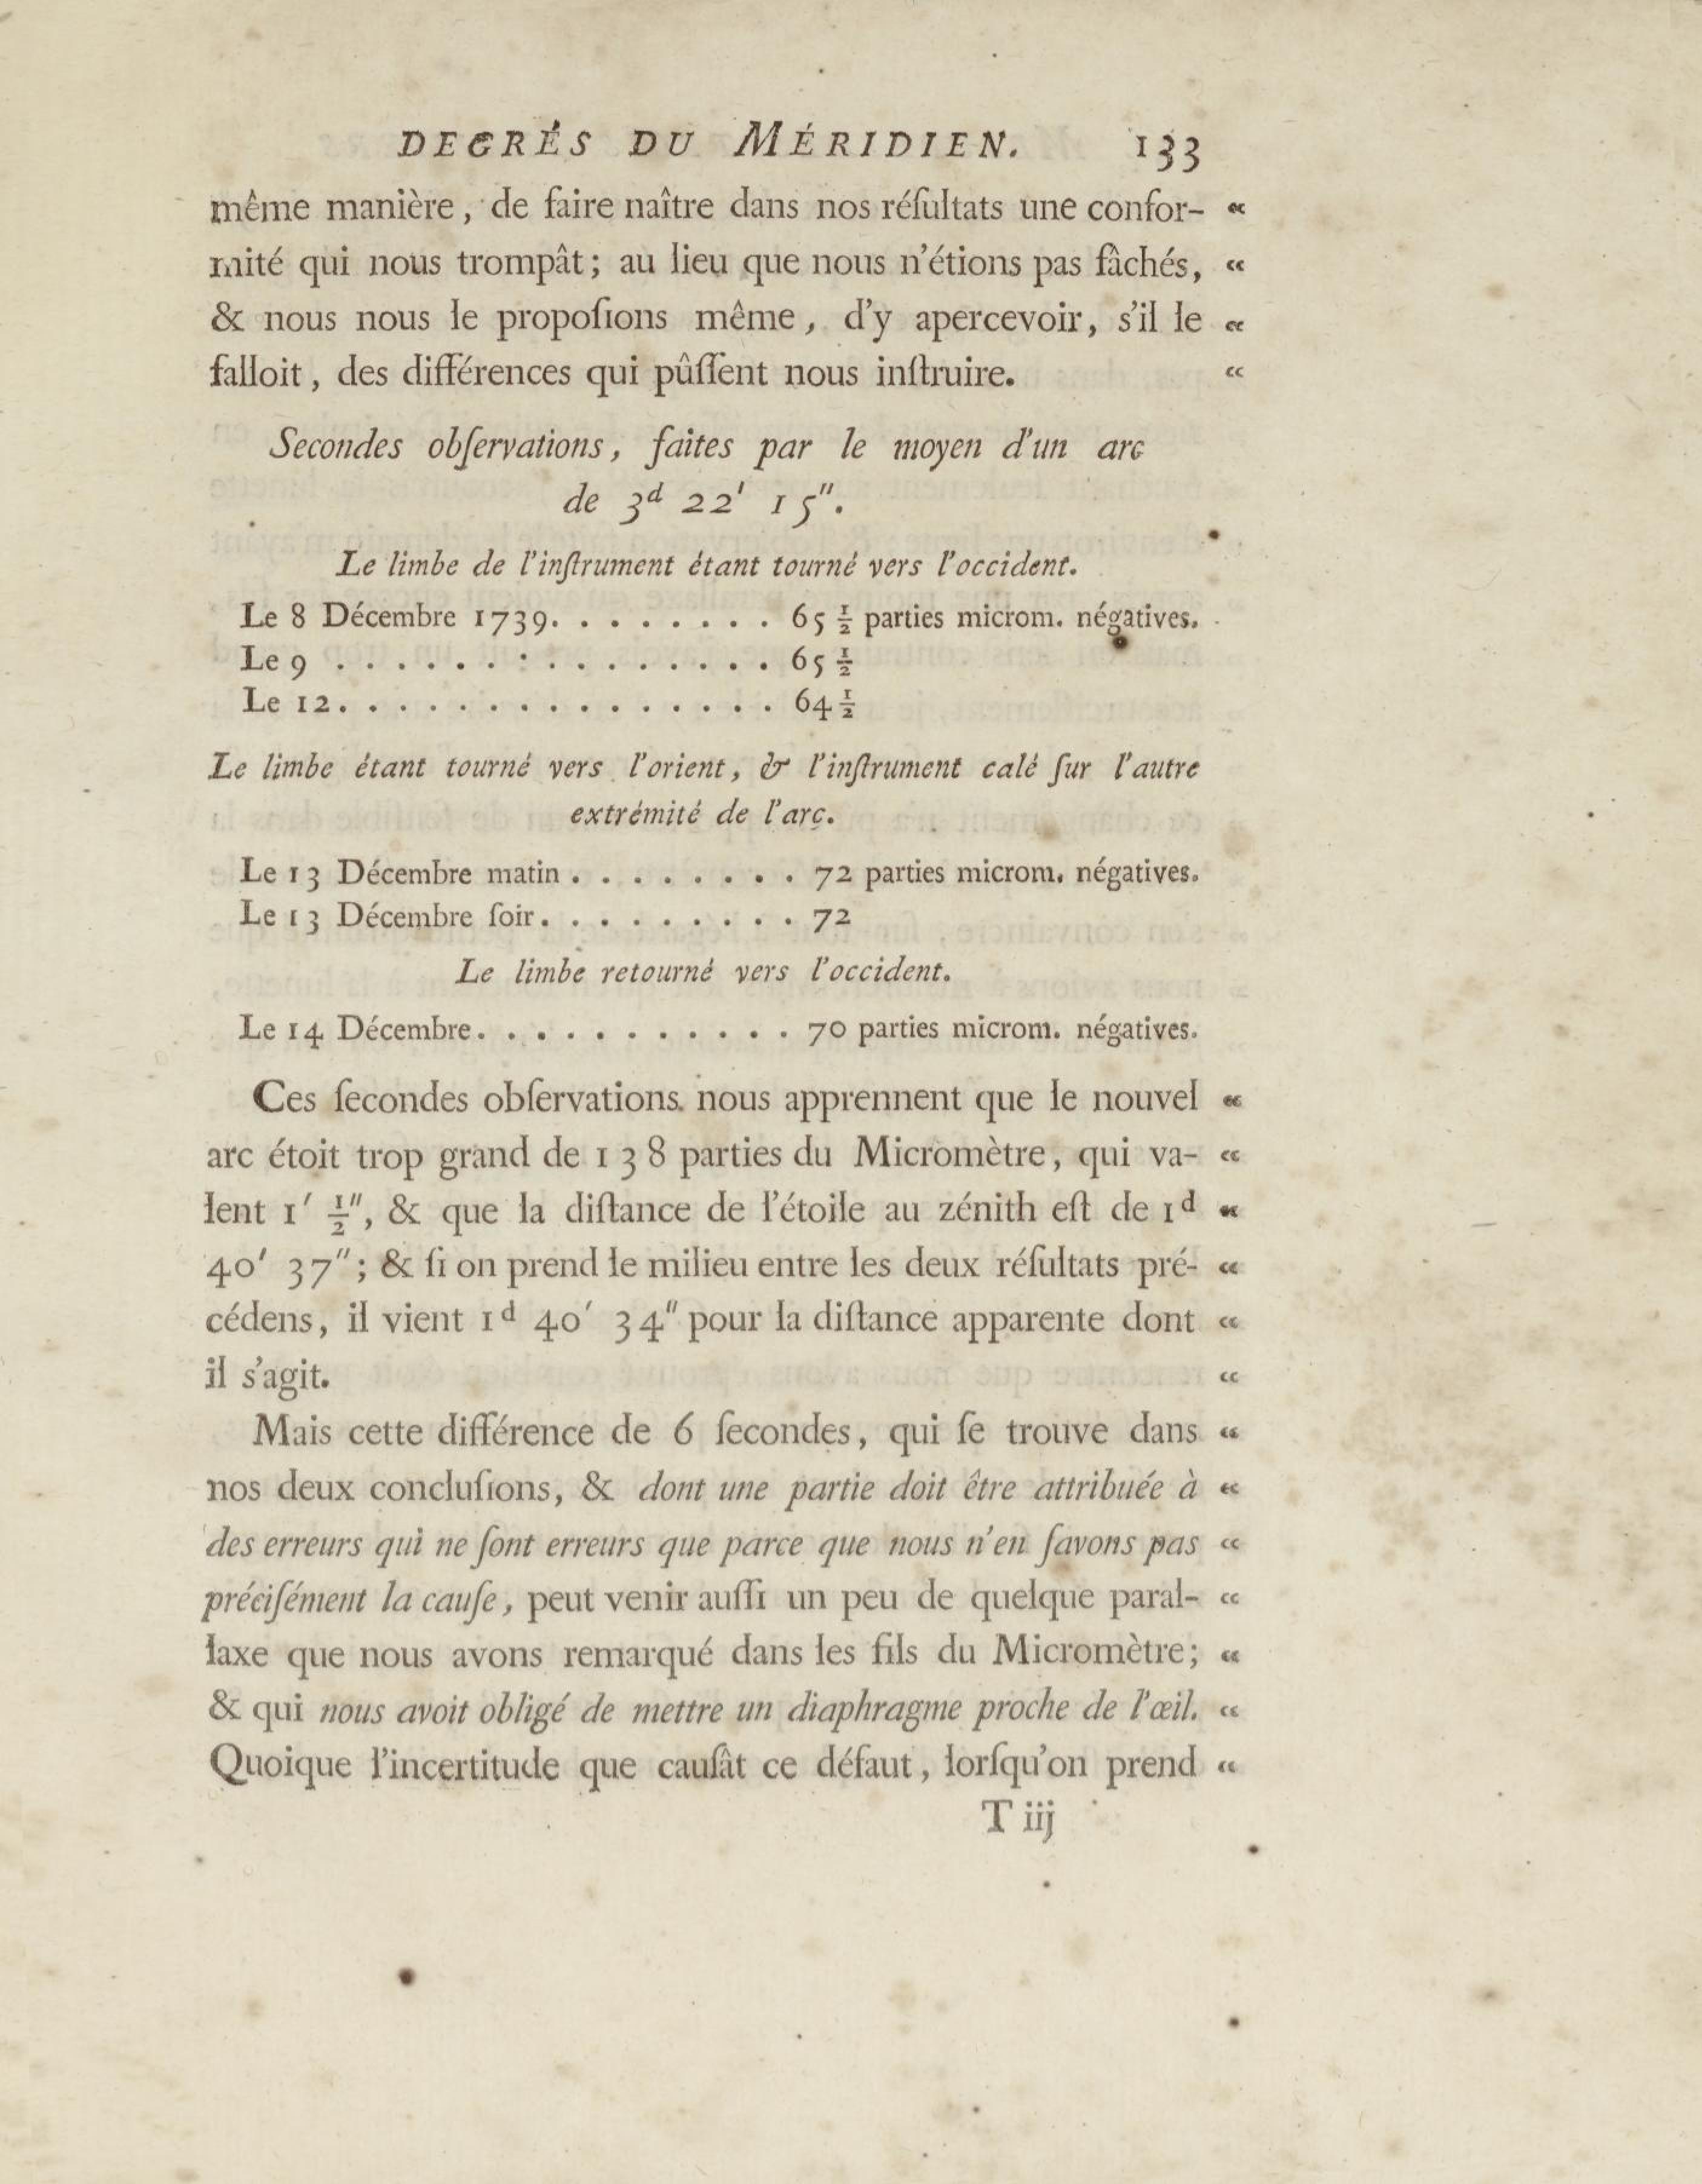 DEGRÉS DU MÉRIDIEN. 133
même manière, de faire naître dans nos réſultats une confor- «
mité qui nous trompât; au lieu que nous n'étions pas fâchés, «
& nous nous le propoſions même, d'y apercevoir, s'il le «
falloit, des différences qui pûſſent nous inſtruire. «
Secondes obſervations, faites par le moyen d'un arc
de 3ᵈ 22′ 15″.
Le limbe de l'inſtrument étant tourné vers l'occident.
Le 8 Décembre 1739. . . . . . . . 65 ½ parties microm. négatives.
Le 9 . . . . . . . . . . . . . . . 65 ½
Le 12. . . . . . . . . . . . . . . 64 ½
Le limbe étant tourné vers l'orient, & l'inſtrument calé ſur l'autre
extrémité de l'arc.
Le 13 Décembre matin . . . . . . . . 72 parties microm. négatives.
Le 13 Décembre ſoir. . . . . . . . . 72
Le limbe retourné vers l'occident.
Le 14 Décembre. . . . . . . . . . . 70 parties microm. négatives.
Ces ſecondes obſervations nous apprennent que le nouvel «
arc étoit trop grand de 138 parties du Micromètre, qui va- «
lent 1′ ½″, & que la diſtance de l'étoile au zénith eſt de 1ᵈ «
40′ 37″; & ſi on prend le milieu entre les deux réſultats pré- «
cédens, il vient 1ᵈ 40′ 34″ pour la diſtance apparente dont «
il s'agit. «
Mais cette différence de 6 ſecondes, qui ſe trouve dans «
nos deux concluſions, & dont une partie doit être attribuée à «
des erreurs qui ne ſont erreurs que parce que nous n'en ſavons pas «
préciſément la cauſe, peut venir auſſi un peu de quelque paral- «
laxe que nous avons remarqué dans les fils du Micromètre; «
& qui nous avoit obligé de mettre un diaphragme proche de l'œil. «
Quoique l'incertitude que cauſât ce défaut, lorſqu'on prend «
T iij